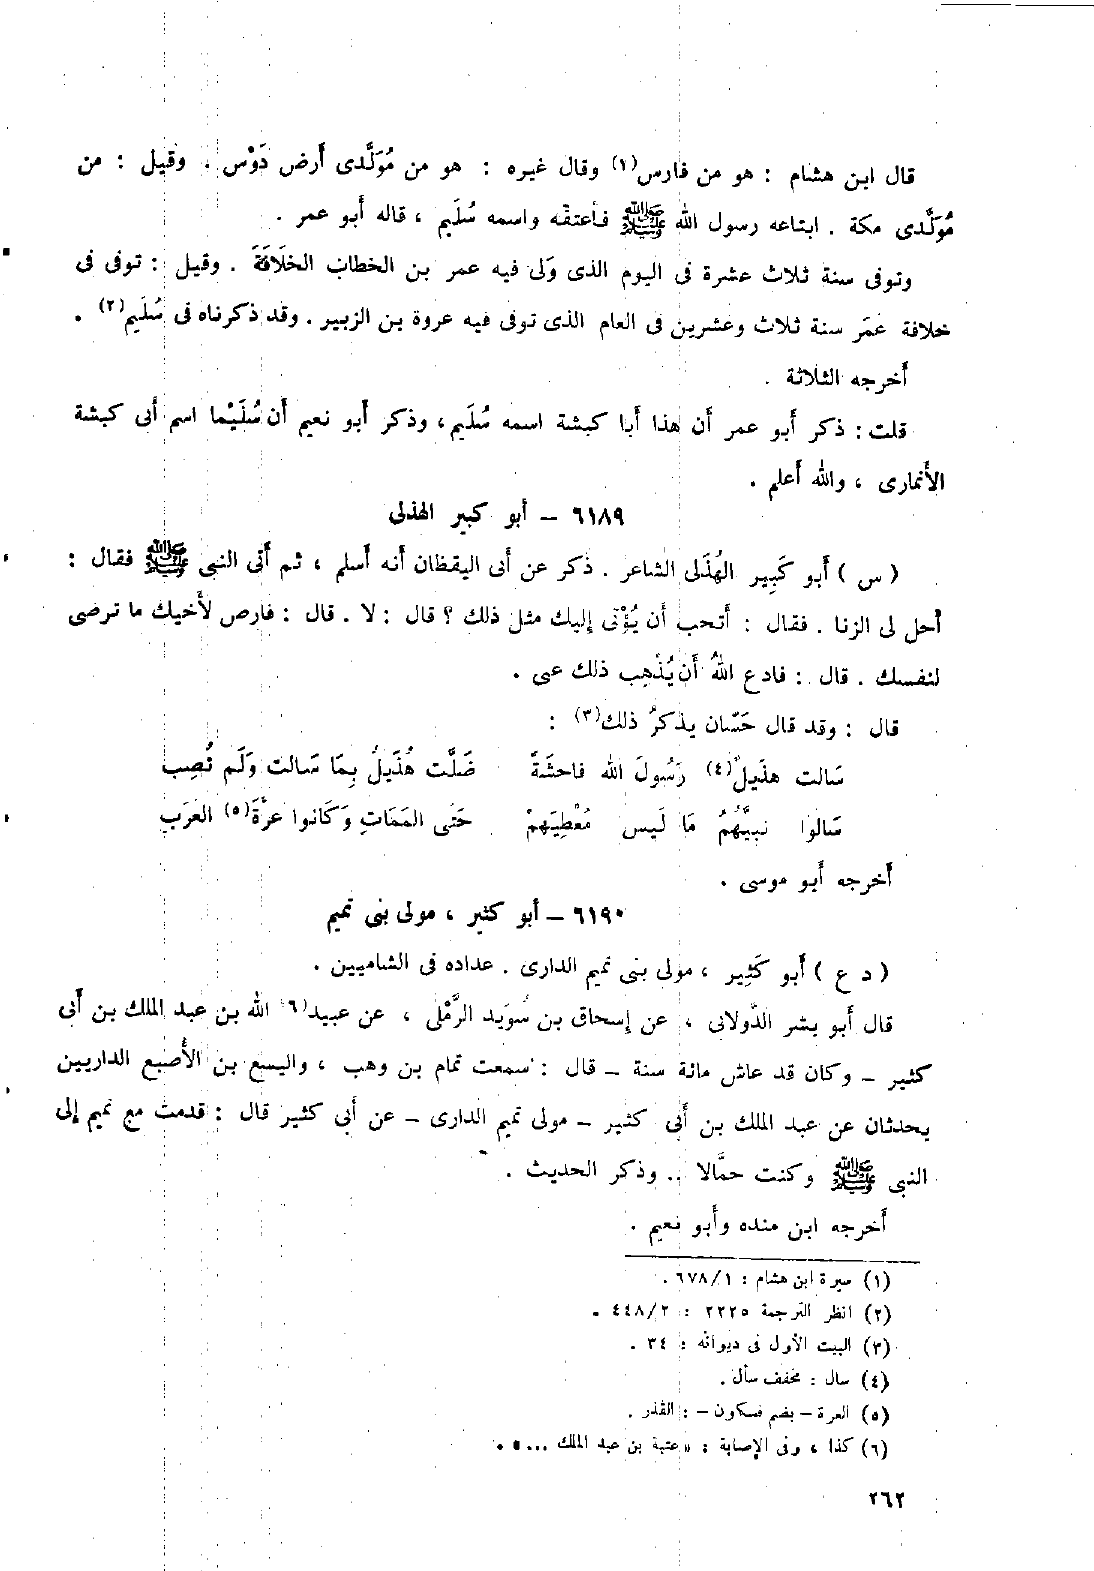 قال ابن هشام : هو من فارس(١) وقال غيره : هو من مُوَلَّدى أرض دَوْس . وقيل : من
مُوَلَّدى مكة . ابتاعه رسول الله ﷺ فأعتقه واسمه سُلَيم ، قاله أبو عمر .
وتوفى سنة ثلاث عشرة فى اليوم الذى وَلى فيه عمر بن الخطاب الخلَافَةَ . وقيل : توفى فى
خلافة عمَر سنة ثلاث وعشرين فى العام الذى توفى فيه عروة بن الزبير . وقد ذكرناه فى سُلَيم(٢) .
أخرجه الثلاثة .
قلت : ذكر أبو عمر أن هذا أبا كبشة اسمه سُلَيم ، وذكر أبو نعيم أن سُلَيْما اسم أبى كبشة
الأنمارى ، والله أعلم .
٦١٨٩ – أبو كبير الهذلى
( س ) أبو كَبِير الهُذَلى الشاعر . ذكر عن أبى اليقظان أنه أسلم ، ثم أتى النبى ﷺ فقال :
أحل لى الزنا . فقال : أتحب أن يُؤتى إليك مثل ذلك ؟ قال : لا . قال : فارض لأخيك ما ترضى
لنفسك . قال : فادع اللهُ أن يُذْهِب ذلك عى .
قال : وقد قال حَسّان يذكرُ ذلك(٣) :
سَالت هذَيلٌ(٤) رَسُولَ الله فاحشَةً ضَلَّت هُذَيلُ بِمَا سَالت وَلَم تُصِب
سَالوُا نبيَّهُمُ مَا لَيس مُعْطِيَهمْ حَتى المَمَاتِ وَكَانوا عرْةَ(٥) العَرَب
أخرجه أبو موسى .
٦١٩٠ – أبو كثير ، مولى بنى تميم
( د ع ) أبو كَثِير ، مولى بنى تميم الدارى . عداده فى الشاميين .
قال أبو بشر الدَّولابى ، عن إسحاق بن سُوَيد الرَّمْلى ، عن عبيد(٦) الله بن عبد الملك بن أبى
كثير – وكان قد عاش مائة سنة – قال : سمعت تمام بن وهب ، واليسع بن الأصبع الداريين
يحدثان عن عبد الملك بن أبى كثير – مولى تميم الدارى – عن أبى كثير قال : قدمت مع تميم إلى
النبى ﷺ وكنت حمَّالا .. وذكر الحديث .
أخرجه ابن منده وأبو نعيم .
(١) سيرة ابن هشام : ٦٧٨/١ .
(٢) انظر الترجمة ٢٢٢٥ : ٤٤٨/٢ .
(٣) البيت الأول فى ديوانه : ٣٤ .
(٤) سال : مخفف سأل .
(٥) العرة – بضم فسكون – : القذر .
(٦) كذا ، وفى الإصابة : « عتبة بن عبد الملك ... » .
٢٦٢